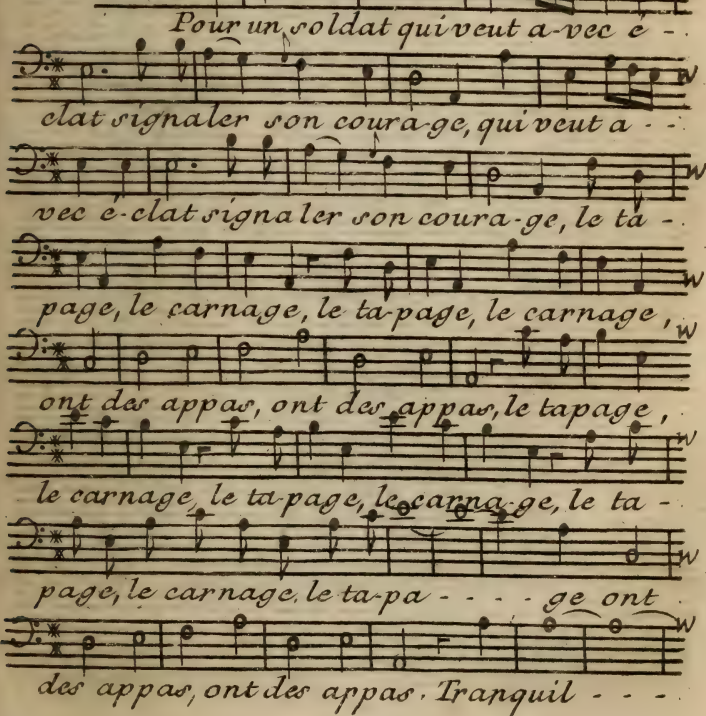 Pour un soldat qui veut a-vec é -
clat signaler son coura-ge, qui veut a - -
vec é-clat signaler son coura-ge, le ta -
page, le carnage, le ta-page, le carnage,
ont des appas, ont des appas, le tapage,
le carnage, le ta-page, le carna-ge, le ta -
page, le carnage. le ta-pa - - - - ge ont
des appas, ont des appas. Tranquil - - - -